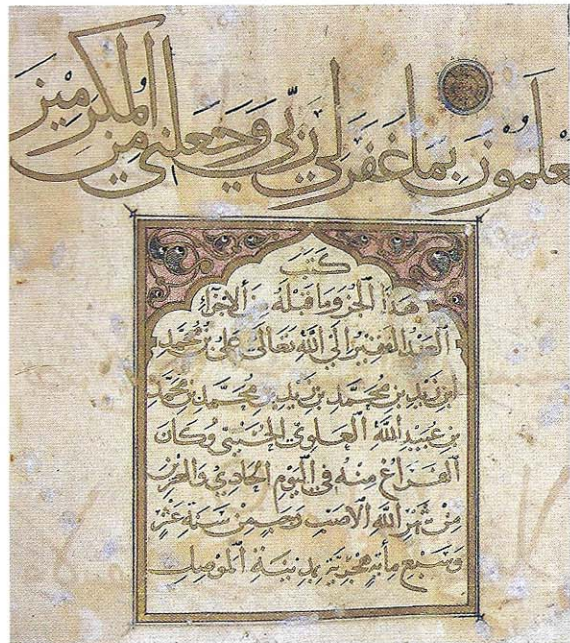 يعلمون بما غفر لي ربي وجعلني من المكرمين
كتب
هذا الجزء وما قبله من الاجزاء
العبد الفقير الي الله تعالى علي بن محمد
ابن زيد بن محمد بن زيد بن محمد بن محمد
بن عبيد الله العلوي الحسيني وكان
الفراغ منه في اليوم الحادي والعشرين
من شهر الله الاصب رجب من سنة عشر
وسبع مأية هجرية بمدينة الموصل